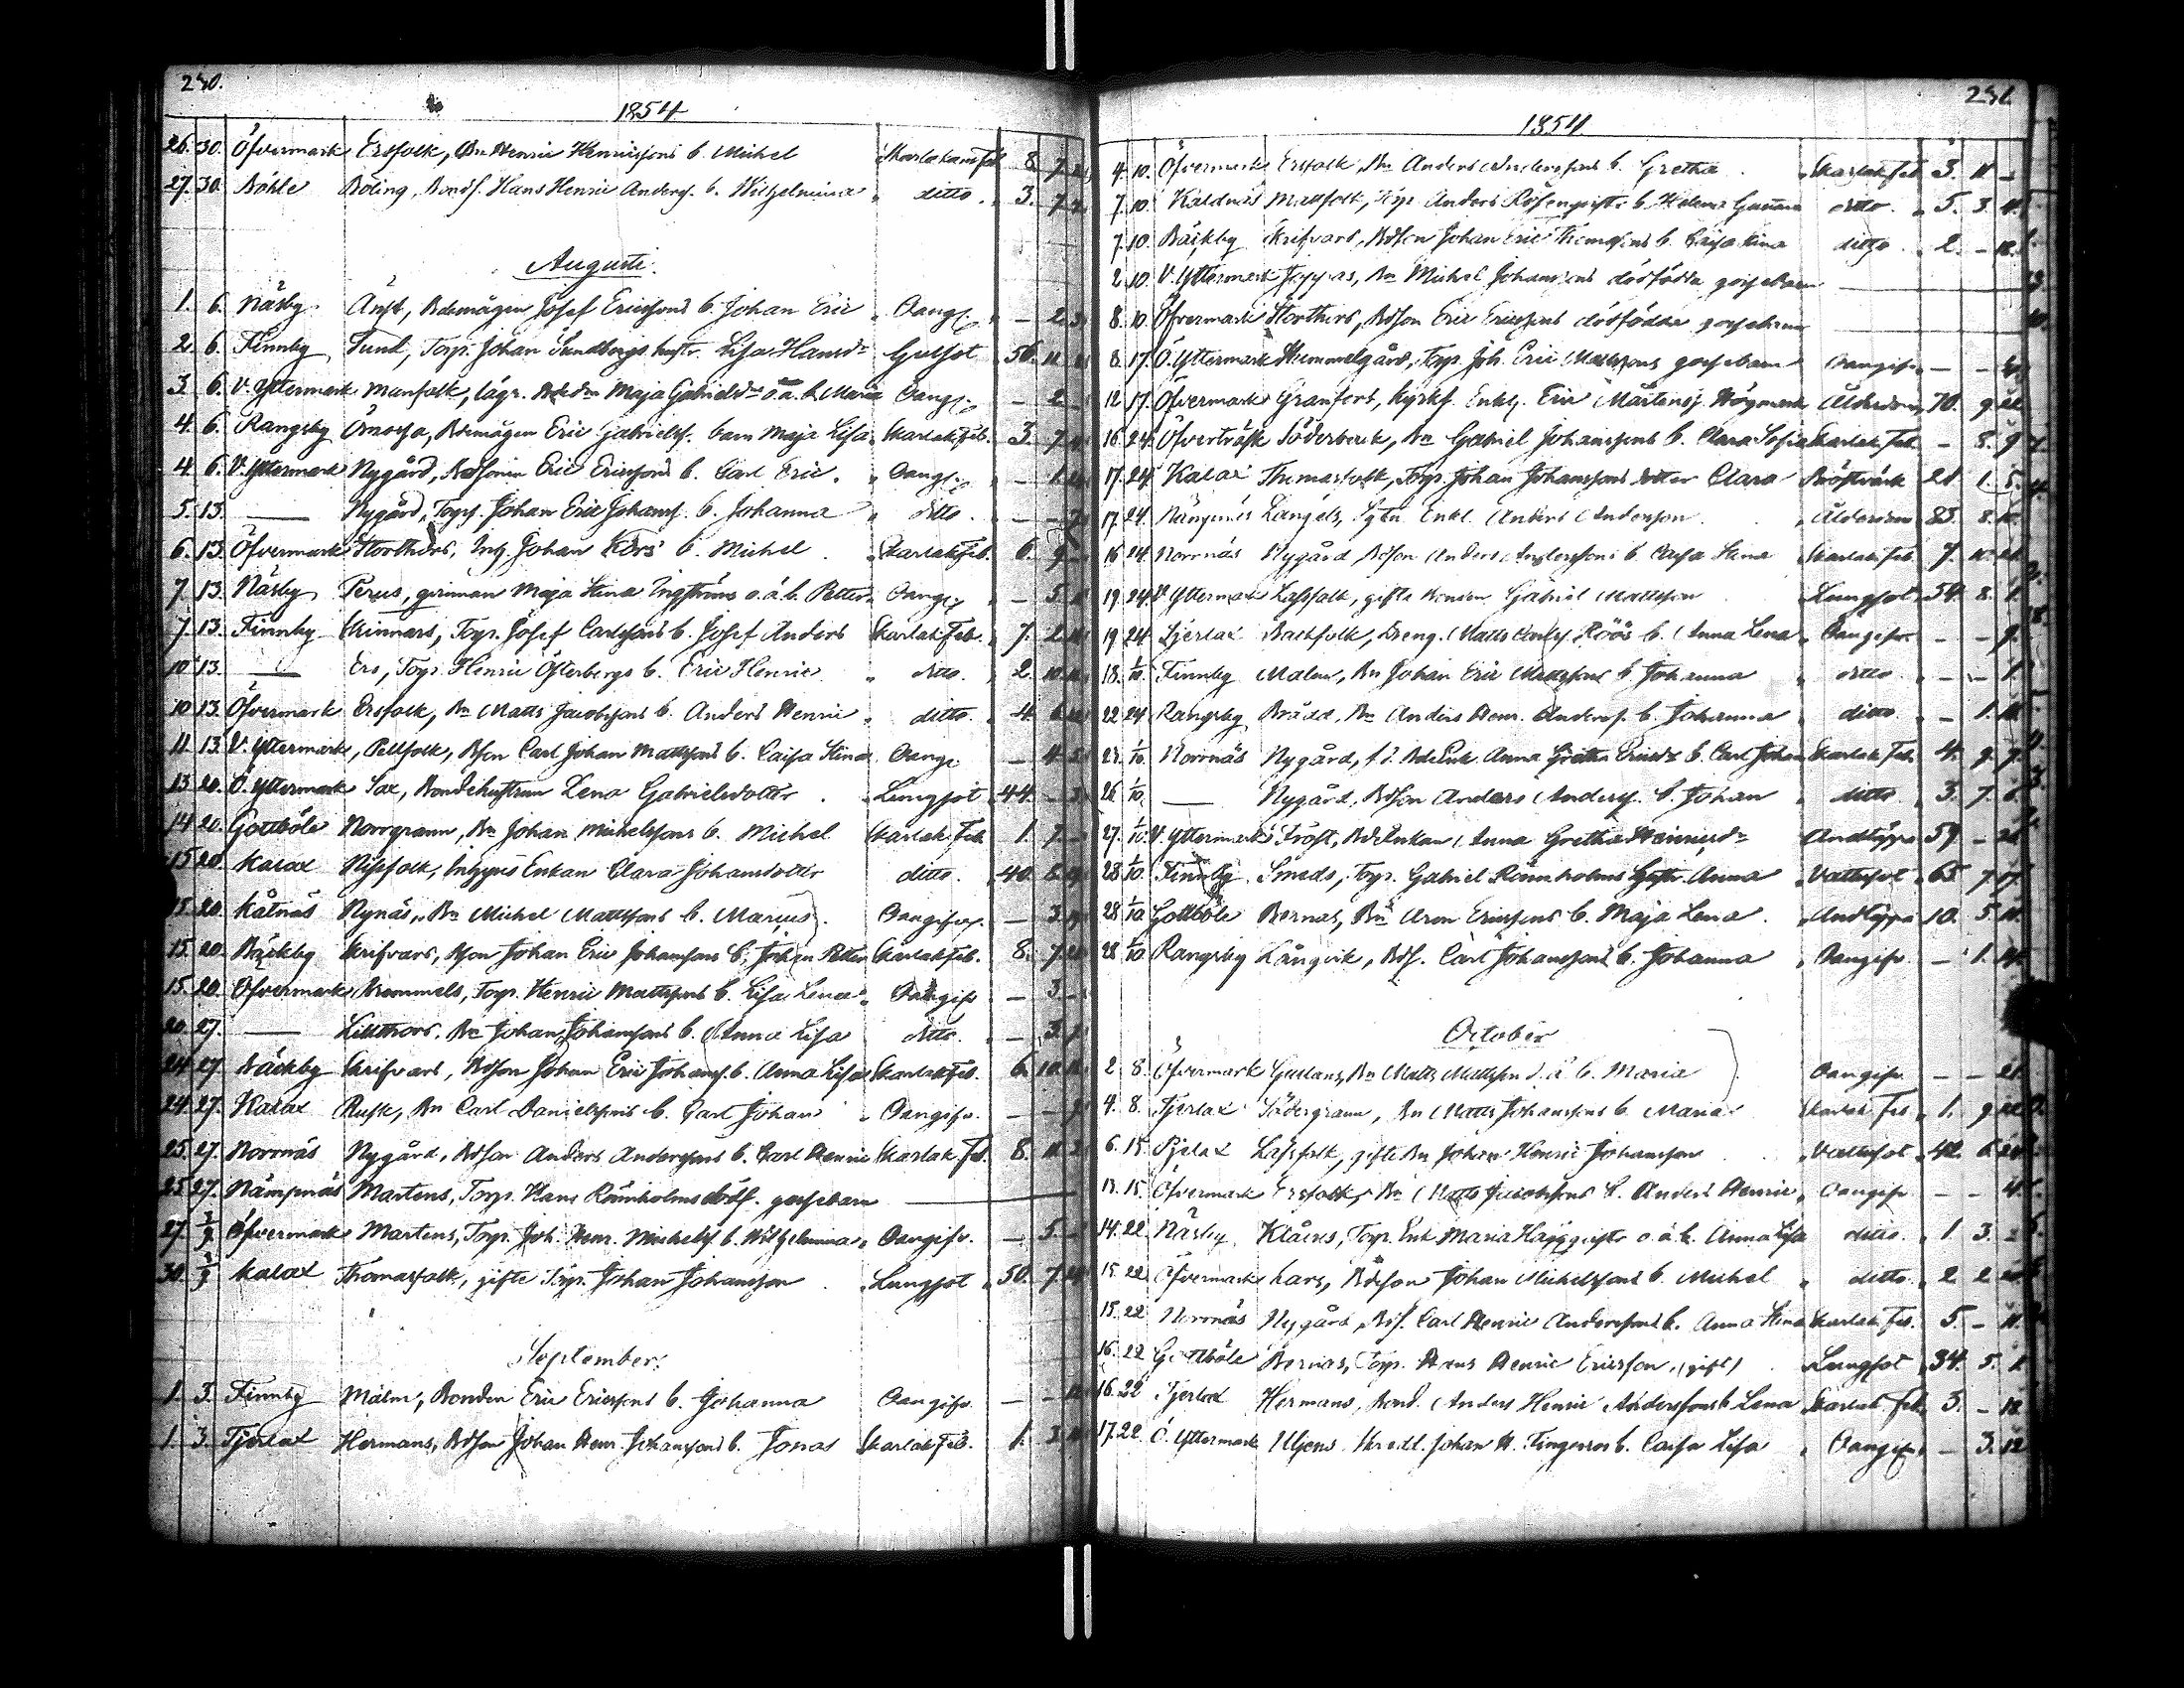 230.
1854
26. 30. Öfvermark Ersfolk, Bn Henric Henricssons b. Michel Skarlakansfeb 8. 7.
27. 30. Böhle Böling, Bonds. Hans Henric Anderss. b. Wilhelmina ditto 3. 7.
Augusti.
1. 6. Näsby Änst, Bdemågen Josef Ericssons b. Johan Eric Oangf. — 2.
2. 6. Finnby Sund, Torp. Johan Sundbergs hustr. Lisa Hansdr Gulsot 56. 11.
3. 6. V. Yttermark Manfolk, lägr. Maja Gabrielsdr o.ä. b. Maria Oangf. — 2.
4. 6. Rangsby Ömossa, Bdemågen Eric Gabrielss. barn Maja Lisa Skarlak.Feb. 3. 7.
4. 6. V. Yttermark Nygård, Bdsonen Eric Ericssons b. Carl Eric Oangf. — 1.
5. 13. — Nygård, Torp. Johan Eric Johanss. b. Johanna ditto — —
6. 13. Öfvermark Storthors, Inh. Johan Kors b. Michel Skarlak.Feb. 6. 9.
7. 13. Näsby Perus, qvinnan Maja Stina Ingströms o.ä. b. Petter Oangf. — 5.
7. 13. Finnby Kinnars, Torp. Josef Carlssons b. Josef Anders Skarlak.Feb. 7. 2.
10 13. — Ers, Torp. Henric Österbergs b. Eric Henric ditto 2. 10.
10 13. Öfvermark Ersfolk, Bn Matts Jacobssons b. Anders Henric ditto. 4. 6.
11. 13. V. Yttermark, Pellfolk, Bson Carl Johan Mattssons b. Caisa Stina Oangf. — 4.
13 20. Ö. Yttermark Sax, Bondehustrun Lena Gabrielsdotter Lungsot 44. —
14 20. Gottböle Norrgrann, Bn Johan Michelssons b. Michel Skarlak.Feb. 1. 7.
15 20 Kalax Nissfolk, Inhyses Enkan Clara Johansdotter ditto. 40. 8.
15. 20. Kåtnäs Rynäs, Bn Michel Mattssons b. Marcus Oangifv. — 3.
15. 20. Bäckby Skrifvars, Bson Johan Eric Johanssons b. Johan Petter Skarlak.Feb. 8. 7.
15. 20. Öfvermark Krommels, Torp. Henric Mattssons b. Lisa Lena Oangifv — 3.
20. 27. — Lillthors, Bn Johan Johanssons b. Anna Lisa ditto. — 3.
24 27. Bäckby Skrifvars, Bdson Johan Eric Johanss. b. Anna Lisa Skarlak.Feb. 6. 10.
24. 27. Kalax Rusk, Bn Carl Danielssons b. Carl Johan Oangifv. — —
25. 27. Norrnäs Nygård, Bdson Anders Anderssons b. Carl Henric Skarlak.Feb. 8. 11.
25 27. Nämpnäs Martens, Torp. Hans Rönnholms dödf. gossebarn —
27. 3/9 Öfvermark Martens, Torp. Joh. Henr. Michelss. b. Wilhelmina Oangifv. — 5.
30. 3/9 Kalax Thomasfolk, gifte Torp. Johan Johansson Lungsot 50. 7.
September.
1. 3. Finnby Malm, Bonden Eric Ericssons b. Johanna Oangifv. — —
1. 3. Tjerlax Hermans, Bdson Johan Henr. Johanssons b. Jonas Skarlak.Feb. 1. 3.
231
1854
4. 10. Öfvermark Ersfolk, Bn Anders Anderssons b. Gretha Skarlak.Feb 3. 11 —
7. 10. Kaldnäs Mattfolk, Torp. Anders Rosengrist b. Helena Gustava ditto. 5. 3.
7. 10. Bäckby Skrifvars, Bdson Johan Eric Thomassons b. Caisa Stina ditto 2. —
2. 10. V. Yttermark Jeppas, Bn Michel Johanssons dödfödda gossebarn —
8. 10. Öfvermark Storthors, Bdson Eric Ericssons dödfödda gossebarn
8. 17. Ö. Yttermark Hemmelgård, Torp. Joh. Eric Mattssons gossebarn Oangifv. — —
12 17. Öfvermark Granfors, Kyrkf. Enkl. Eric Mårtenss. Högmark Ålderdom 70. 9
16. 24. Öfverträsk Söderback, Bn Gabriel Johanssons b. Clara Sofia Skarlak.Feb. — 8. 9
17. 24. Kalax Thomasfolk, Torp. Johan Johanssons dotter Clara Bröstvärk 21 1. 5.
17. 24. Nämpnäs Långels, Sytn. Enkl. Anders Andersson Ålderdom 83. 8.
16 24 Norrnäs Nygård, Bdson Anders Anderssons b. Caisa Stina Skarlak.Feb. 7. 10.
19. 24. V. Yttermark Lassfolk, gifte Bonden Gabriel Mattsson Lungsot 54. 8. 1.
19 24. Tjerlax Backfolk, Dreng. Matts Carlss. Röös b. Anna Lena Oangifv. — — 9.
18. 1/10 Finnby Malm, Bn Johan Eric Mattssons b. Johanna ditto — — 1.
22 24. Rangsby Brädd, Bn Anders Henr. Anderss. b. Johanna ditto — 1.
1/10 Norrnäs Nygård, f.d. BdeEnk. Anna Gretha Ericsdr b. Carl Johan Skarlak.Feb. 4. 9. 7.
26. 1/10 — Nygård, Bdson Anders Anderss. b. Johan ditto 3. 7.
27. 1/10 V. Yttermark Tröst, BdeEnkan Anna Gretha Henricsdr Andtäppa 59 —
28 1/10 Finnby Smeds, Torp. Gabriel Rönnholms hustr. Anna Vattusot 65 7
28 1/10 Gottböle Bernas, Bn Aron Ericssons b. Maja Lena Andtäppa 10. 5
28 1/10 Rangsby Långvik, Bds. Carl Johanssons b. Johanna Oangifv. — 1.
October
2. 8. Öfvermark Gustavs, Bn Matts Mattsson d.ä. b. Maria Oangifv — — 21.
4. 8. Tjerlax Södergrann, Bn Matts Johanssons b. Maria Skarlak.Feb 1. 9
6. 15. Pjelax Lassfolk, gifte Bn Johan Henric Johansson Vattusot 42. 6
13. 15. Öfvermark Ersfolk, Bn Matts Jacobssons b. Anders Henric Oangifv — — 4
14. 22. Näsby Klåcus, Torp. Enk. Maria Häggqvists o.ä. b. Anna Lisa ditto. 1 3.
15. 22 Öfvermark Lars, Bdson Johan Michelssons b. Michel ditto. 2 2
15. 22 Norrnäs Nygård, Bds. Carl Henric Anderssons b. Anna Stina Skarlak.Feb. 5. —
16. 22 Gottböle Bernas, Torp. Hans Henric Ericsson, (gift) Lungsot 34. 5.
16. 22 Tjerlax Hermans, Bond. Anders Henric Anderssons b. Lena Skarlak.Feb. 3. —
17. 22. Ö. Yttermark Uljens, Skrädd. Johan H. Fingerroos b. Caisa Lisa Oangifv. — 3. 12